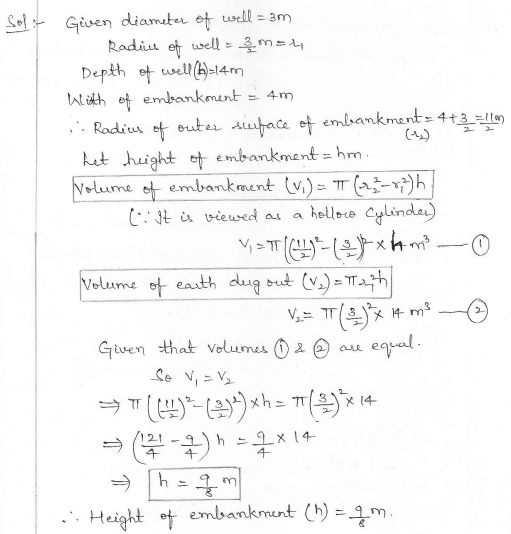 Sol :- Given diameter of well = 3m
Radius of well = 3/2 m = r₁
Depth of well (h) = 14m
Width of embankment = 4m
∴ Radius of outer surface of embankment = 4 + 3/2 = 11/2 m
(r₂)
Let height of embankment = hm.
Volume of embankment (V₁) = π (r₂² - r₁²) h
(∵ It is viewed as a hollow cylinder)
V₁ = π ((11/2)² - (3/2)² × h m³ — ①
Volume of earth dug out (V₂) = π r₁² h
V₂ = π (3/2)² × 14 m³ — ②
Given that volumes ① & ② are equal.
So V₁ = V₂
⇒ π ((11/2)² - (3/2)²) × h = π (3/2)² × 14
⇒ (121/4 - 9/4) h = 9/4 × 14
⇒ h = 9/8 m
∴ Height of embankment (h) = 9/8 m.